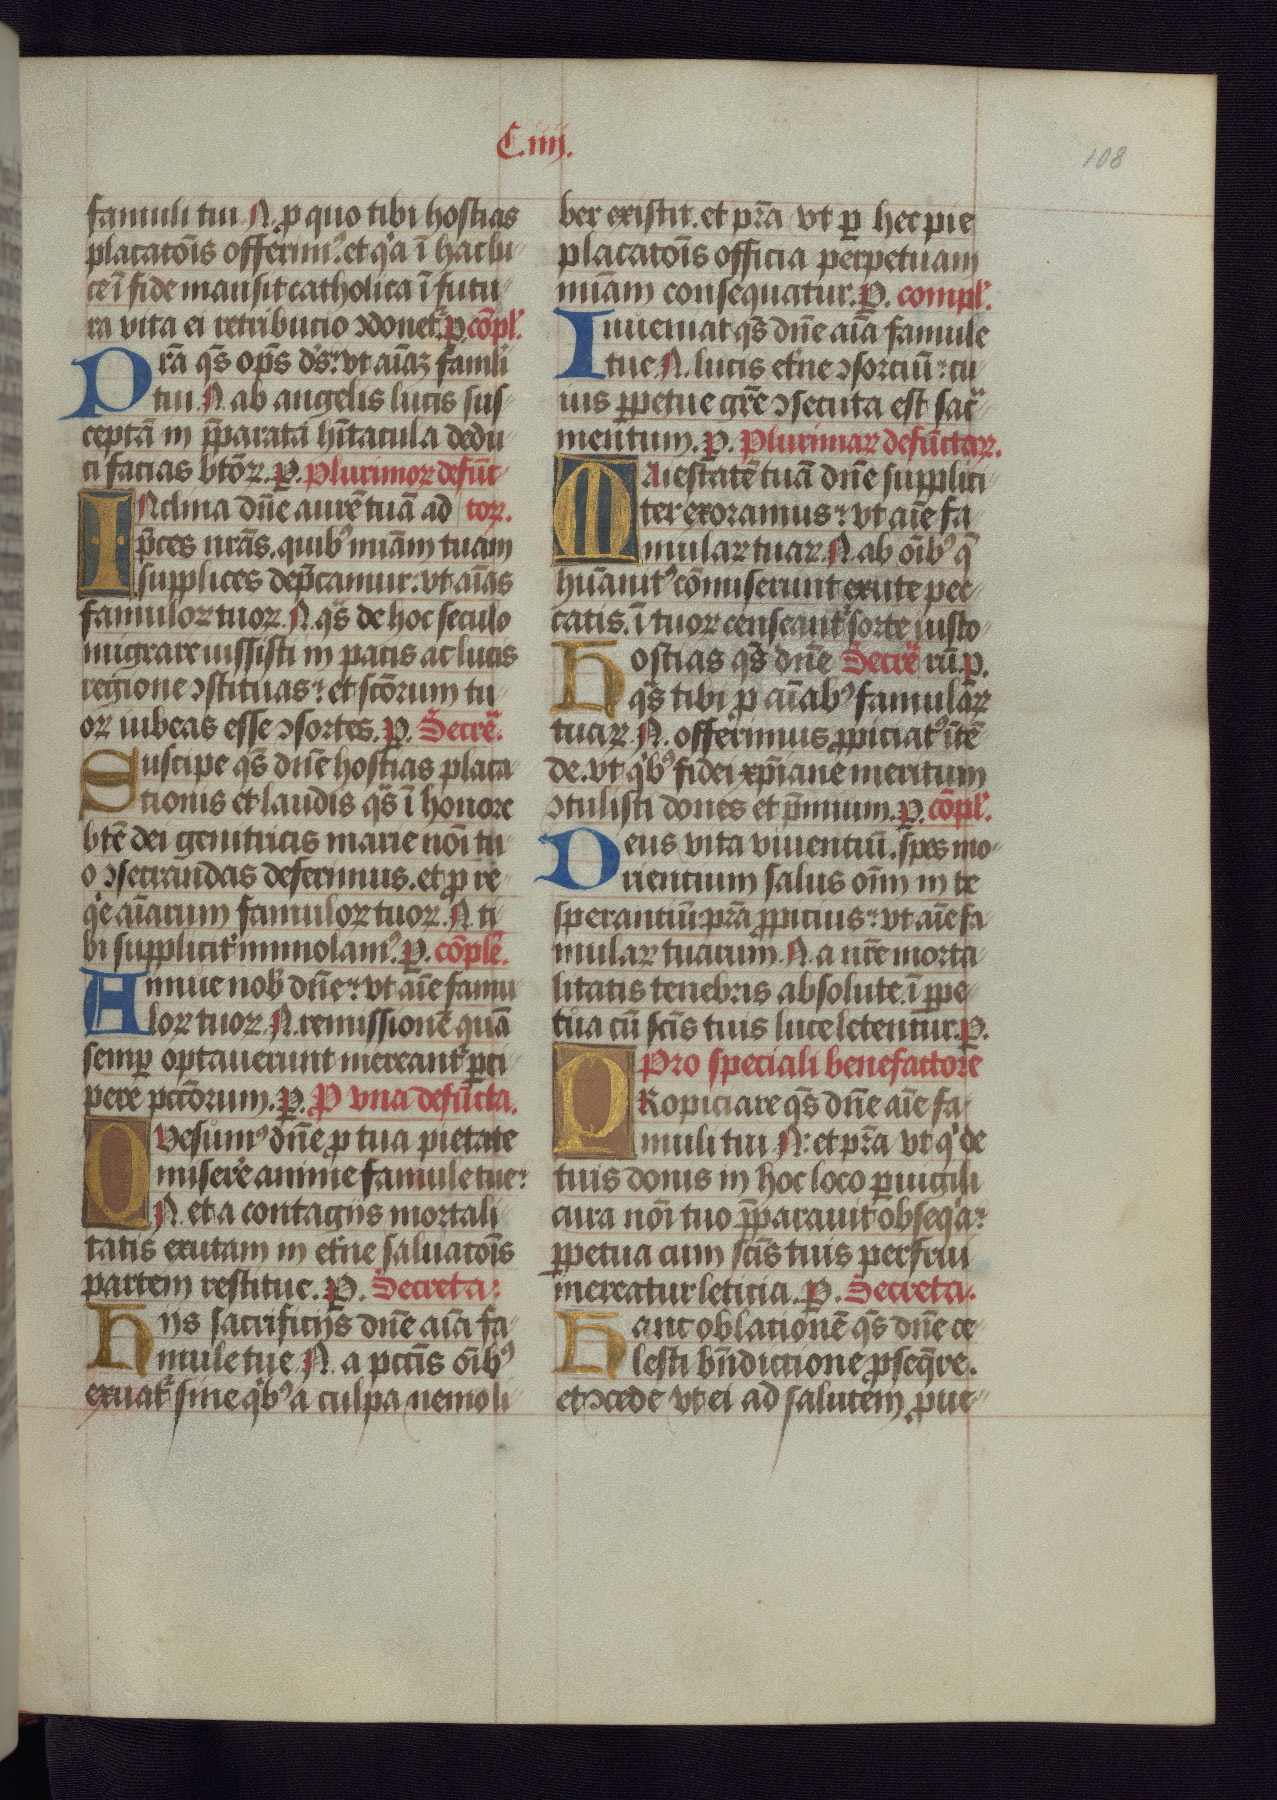 C.iiij.
108
famuli tui .N. ꝓ quo tibi hostias
placatōis offerimꝰ. et q̇a ī hac lu⸗
ce ī fide mansit catholica ī futu⸗
ra vita ei retribucio ↄdonet᷑. P. cōpl᷑.
Pr̄a qs̄ op̄s ds̄: vt aīaꝫ famli
tui .N. ab angelis lucis sus⸗
ceptā in p̄parata hītacula dedu⸗
ci facias btōꝝ. P. Plurimoꝝ defūc⸗
INclina dn̄e aurē tuā ad toꝝ.
p̄ces nr̄as. quibꝰ mīam tuam
supplices dep̄camur. vt aīas
famuloꝝ tuoꝝ .N. qs̄ de hoc seculo
migrare iussisti in pacis ac lucis
regione ↄstituas: et scōrum tu⸗
oꝝ iubeas esse ↄsortes. P. Secre᷑.
Suscipe qs̄ dn̄e hostias placa⸗
tionis et laudis qs̄ ī honore
btē dei genitricis marie nōi tu⸗
o ↄsecrandas deferimus. et ꝓ re⸗
q̇e aīarum famuloꝝ tuoꝝ .N. ti⸗
bi supplicit᷑ immolamꝰ. P. cōple᷑.
Annue nob᷑ dn̄e: vt aīe famu⸗
loꝝ tuoꝝ .N. remissionē quā
semꝑ optauerunt mereant᷑ ꝑci⸗
pere pctōrum. P. P vna defūcta.
QVesumꝰ dn̄e ꝓ tua pietate
miserēre anime famule tue:
.N. et a contagijs mortali⸗
tatis exutam in et᷑ne saluatōis
partem restitue. P. Secreta:
Hijs sacrificijs dn̄e aīa fa⸗
mule tue .N. a pctīs oībꝰ
exuat᷑ sine q̇bꝰ a culpa nemo li⸗
ber existit. et pr̄a vt ꝑ hec pie
placatōis officia perpetuam
mīam consequatur. P. compl᷑.
Inueniat qs̄ dn̄e aīa famule
tue .N. lucis et᷑ne ↄsorciū: cu⸗
ius ꝑpetue gr̄e ↄsecuta est sac᷑⸗
mentum. P. Plurimaꝝ defūctaꝝ.
MAiestatē tuā dn̄e supplici⸗
ter exoramus: vt aīe fa⸗
mulaꝝ tuaꝝ .N. ab oībꝰ q̄
hūanitꝰ cōmiserunt exute pec⸗
catis. ī tuoꝝ censeant᷑ sorte iusto⸗
Hostias qs̄ dn̄e Secre᷑ rū. P.
qs̄ tibi ꝓ aīabꝰ famulaꝝ
tuaꝝ .N. offerimus ꝓpiciatꝰ ītē⸗
de. vt q̇bꝰ fidei xp̄iane meritum
ↄtulisti dones et p̄mium. P. cōpl᷑.
Deus vita viuentiū. spes mo⸗
rientium salus oīm in te
sperantiū: pr̄a ꝓpicius: vt aīe fa⸗
mulaꝝ tuarum .N. a nr̄e morta⸗
litatis tenebris absolute. ī ꝑpe⸗
tua cū scīs tuis luce letentur. P.
Pro speciali benefactore
PRopiciare qs̄ dn̄e aīe fa⸗
muli tui .N: et pr̄a vt q̇ de
tuis donis in hoc loco ꝑuigili
cura nōi tuo p̄parauit obseq̇a:
ꝑpetua cum scīs tuis perfrui
mereatur leticia. P. Secreta.
Hanc oblationē qs̄ dn̄e ce⸗
lesti bn̄dictione ꝓseq̄re.
et ↄcede vt ei ad salutem ꝓue⸗